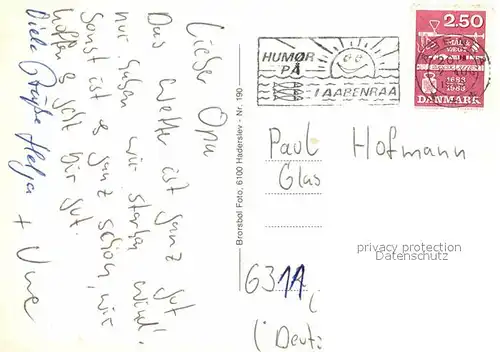 Liebe Opa
Das Wetter ist ganz gut
nur haben wir starken Wind!
Sonst ist es ganz schön, wir
hoffen es geht Dir gut.
Viele Grüße Helga
+ Uwe
Brorsbol Foto, 6100 Haderslev - Nr. 190
HUMØR
PÅ
I AABENRAA
2.50
1683
1983
DANMARK
Paul Hofmann
Glas
631
privacy protection
Datenschutz
(Deut